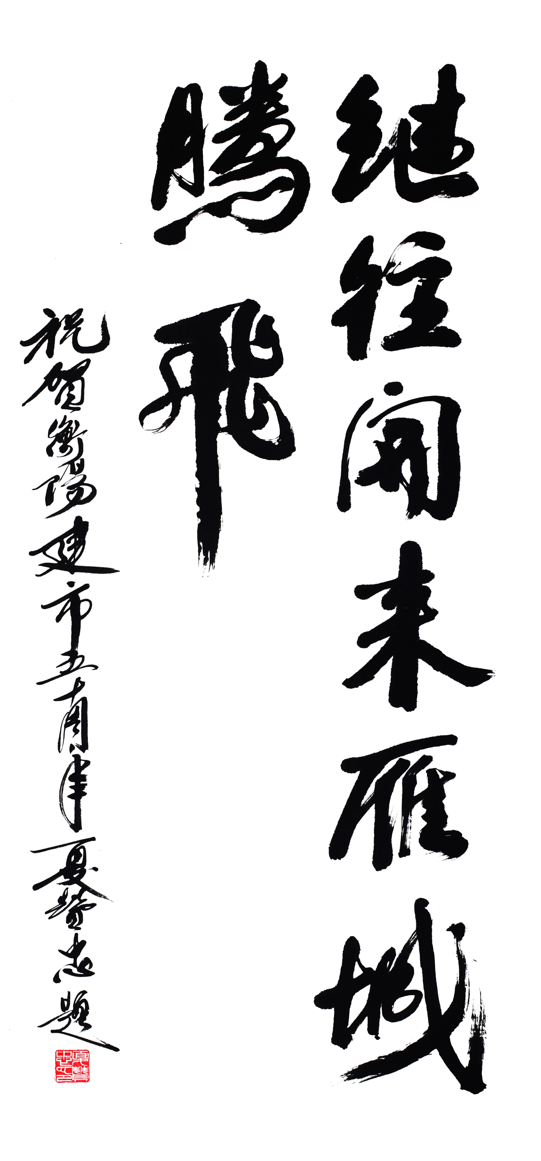 继往开来雁城
腾飞
祝贺衡阳建市五十周年 夏赞忠题